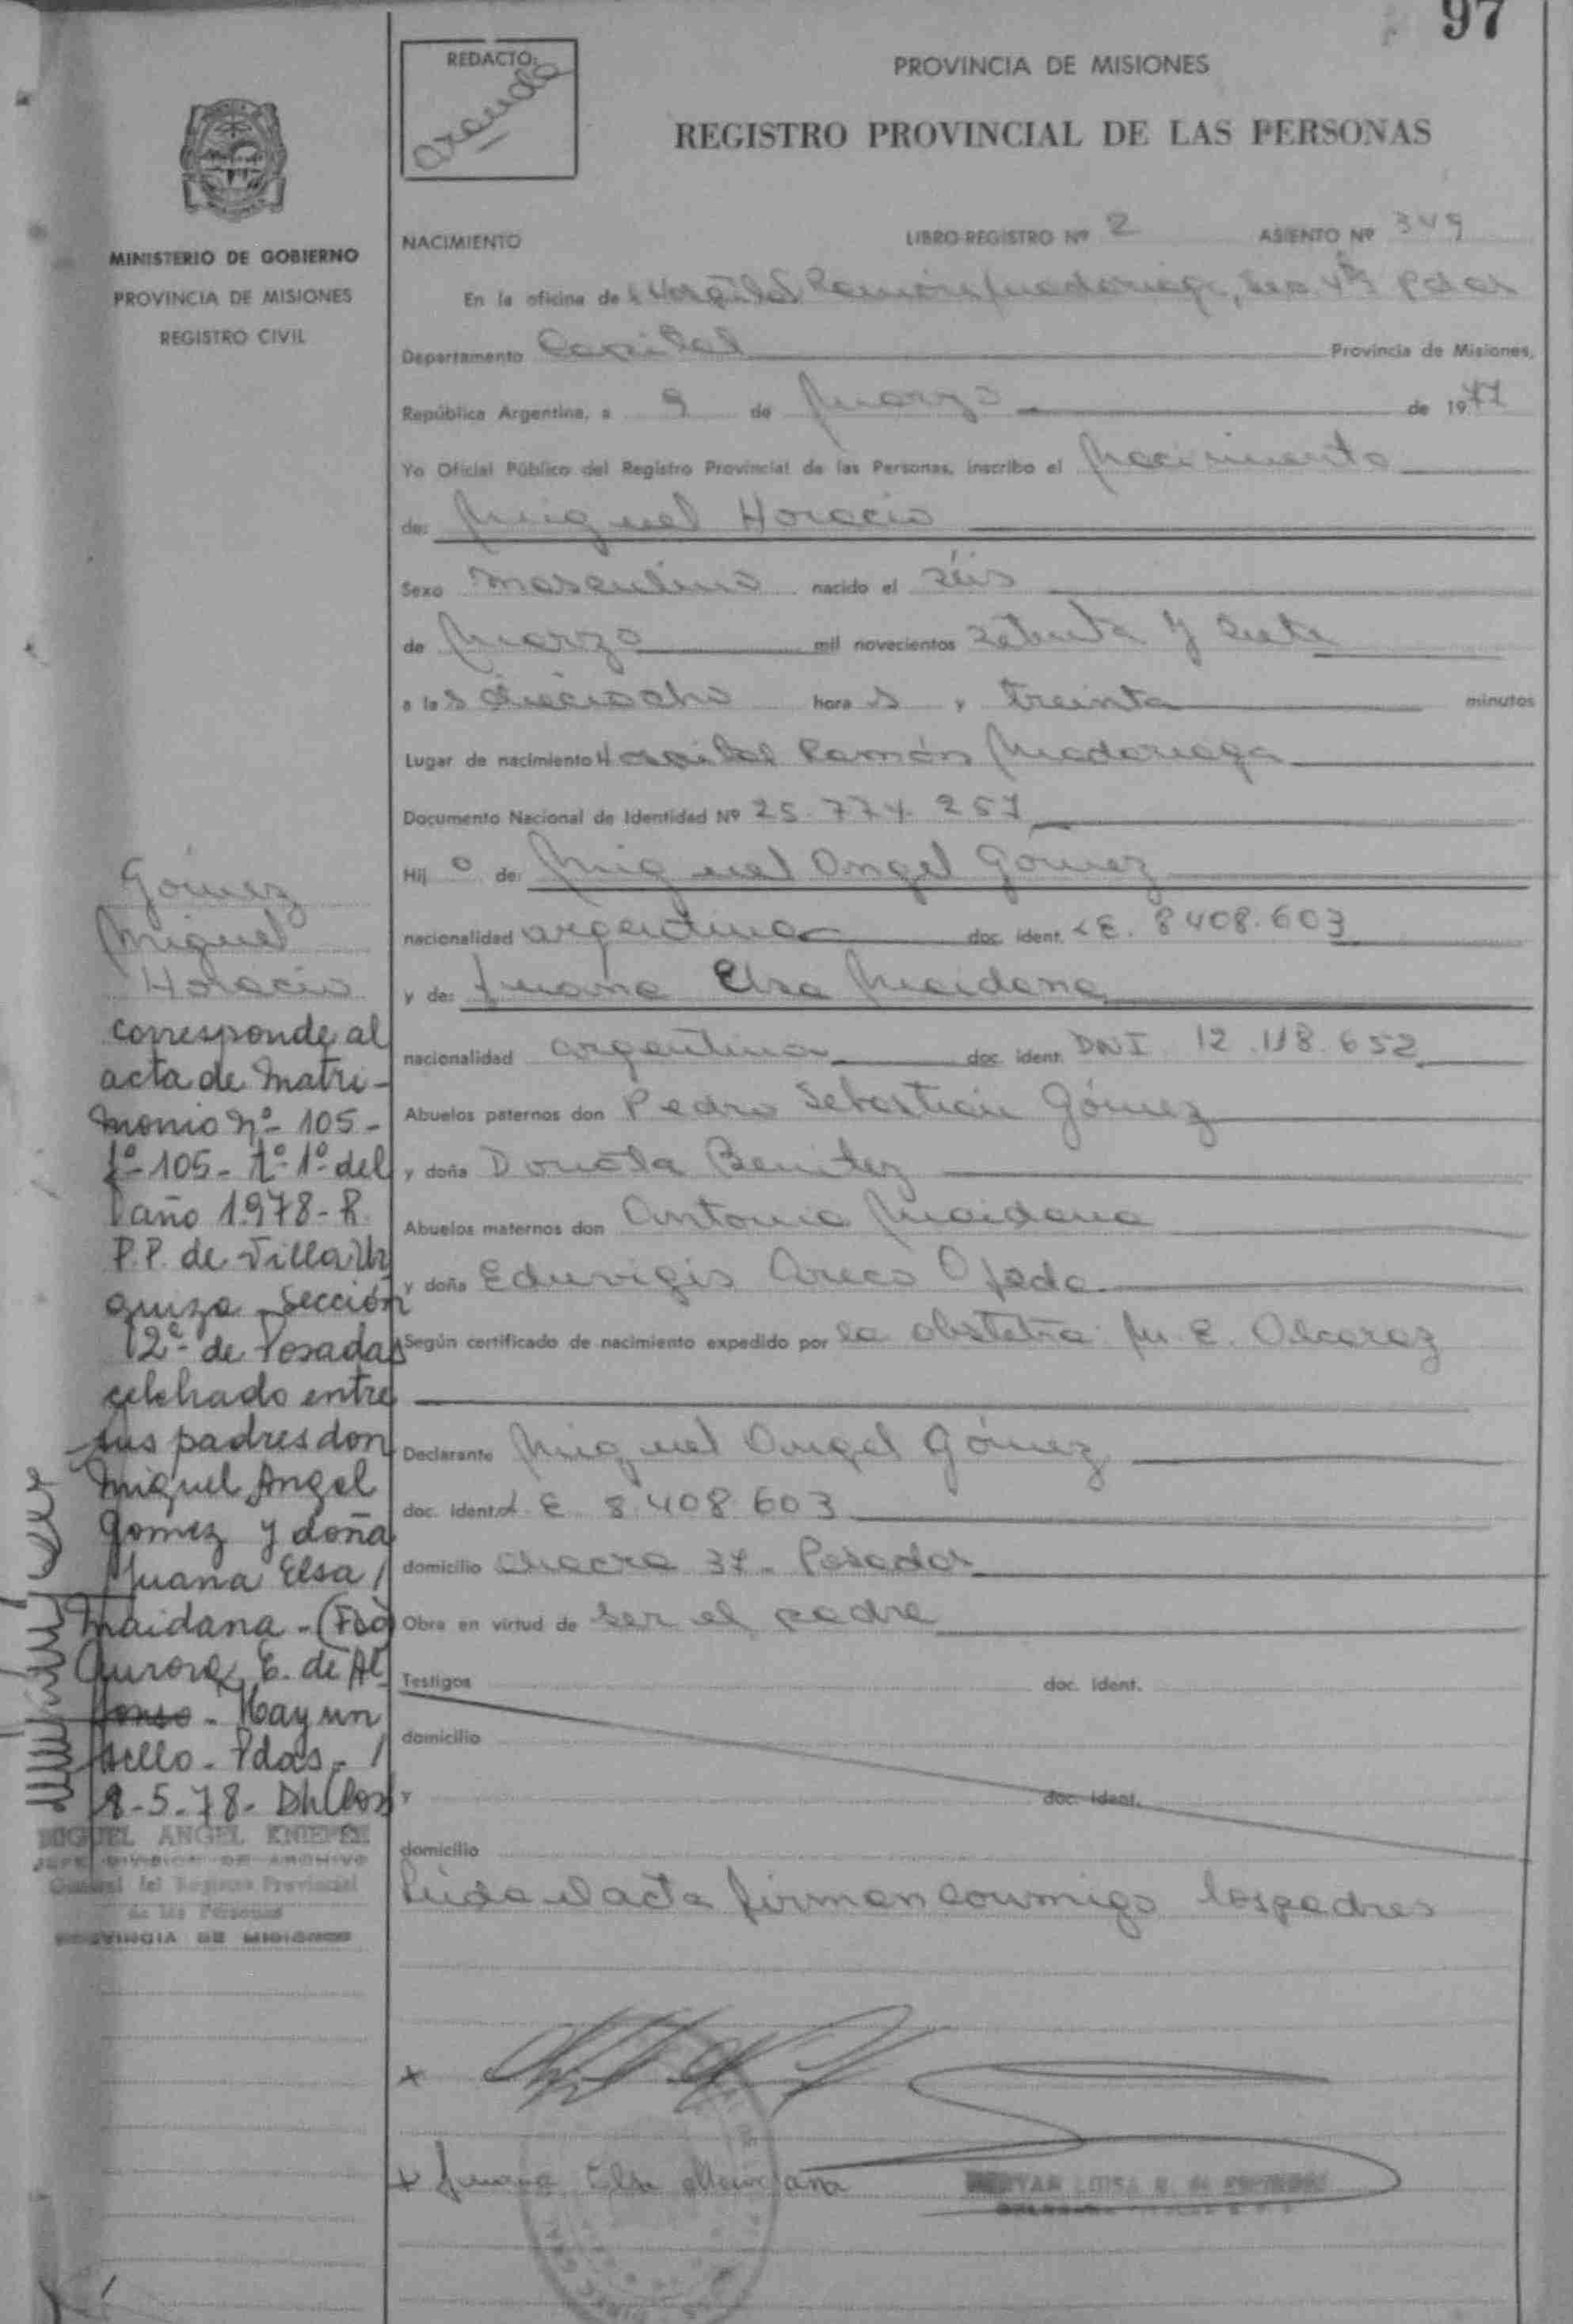 97
REDACTO:
Aranda
PROVINCIA DE MISIONES
REGISTRO PROVINCIAL DE LAS PERSONAS
MINISTERIO DE GOBIERNO
PROVINCIA DE MISIONES
REGISTRO CIVIL
NACIMIENTO LIBRO-REGISTRO Nº 2 ASIENTO Nº 349
En la oficina de Hospital Ramón Madariaga, Sec. 4ª Pdas
Departamento Capital Provincia de Misiones,
República Argentina, a 9 de Marzo de 1977
Yo Oficial Público del Registro Provincial de las Personas, inscribo el Nacimiento
de: Miguel Horacio
Sexo masculino nacido el séis
de Marzo mil novecientos setenta y siete
a las dieciocho horas y treinta minutos
Lugar de nacimiento Hospital Ramón Madariaga
Documento Nacional de Identidad Nº 25.774.257
Hijo de: Miguel Angel Gómez
nacionalidad argentina doc. ident. LE. 8408.603
y de: Juana Elsa Maidana
nacionalidad argentina doc. ident. DNI 12.118.652
Abuelos paternos don Pedro Sebastián Gómez
y doña Donata Benitez
Abuelos maternos don Antonio Maidana
y doña Eduvigis Areco Ojeda
Según certificado de nacimiento expedido por la obstetra M. E. Alcaraz
Declarante Miguel Angel Gómez
doc. ident. L.E. 8.408.603
domicilio Chacra 37 - Posadas
Obra en virtud de ser el padre
Testigos doc. ident.
domicilio
y doc. ident.
domicilio
Leida el acta firman conmigo los padres
Juana Elsa Maidana
Gómez
Miguel
Horacio
corresponde al
acta de Matri-
monio Nº 105-
fº-105- tº-1º del
año 1.978-R.
P.P. de Villa Ur
quiza - Sección
2ª de Posadas
celebrado entre
sus padres don
Miguel Angel
Gomez y doña
Juana Elsa /
Maidana - (Fdo)
Aurora E. de Al
fonso - Hay un
sello - Pdas - /
8-5-78-
MIGUEL ANGEL
JEFE DIVISION DE ARCHIVO
General del Registro Provincial
de las Personas
PROVINCIA DE MISIONES